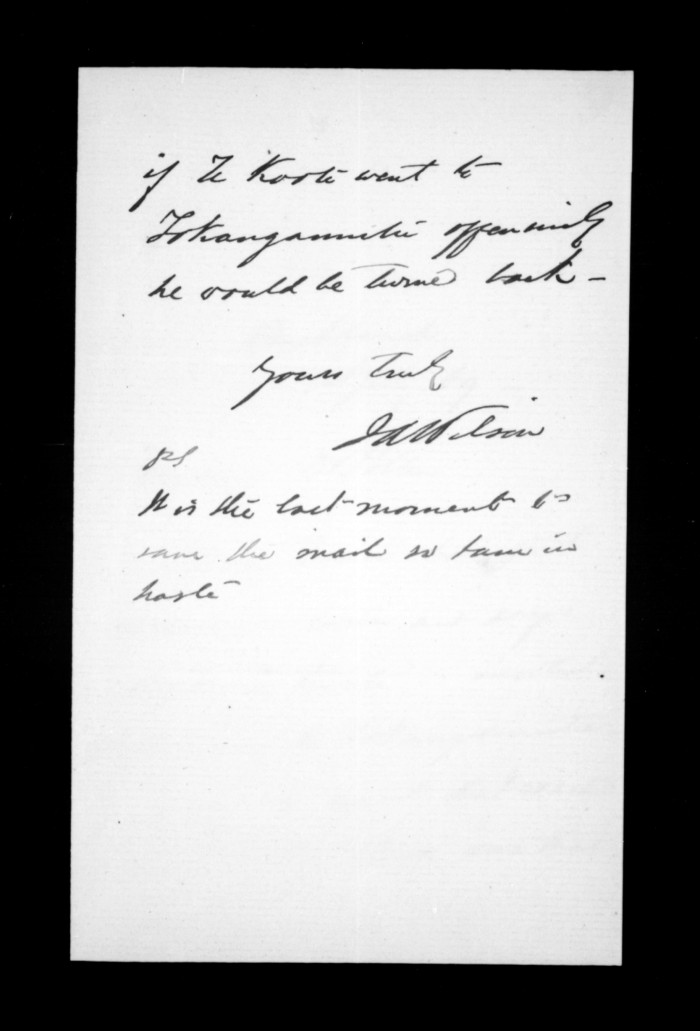 if Te Kooti went to
Tokangamutu offensively
he would be turned back -
Yours truly
JAWilson
PS
It is the last moment to
save the mail so I am in
haste